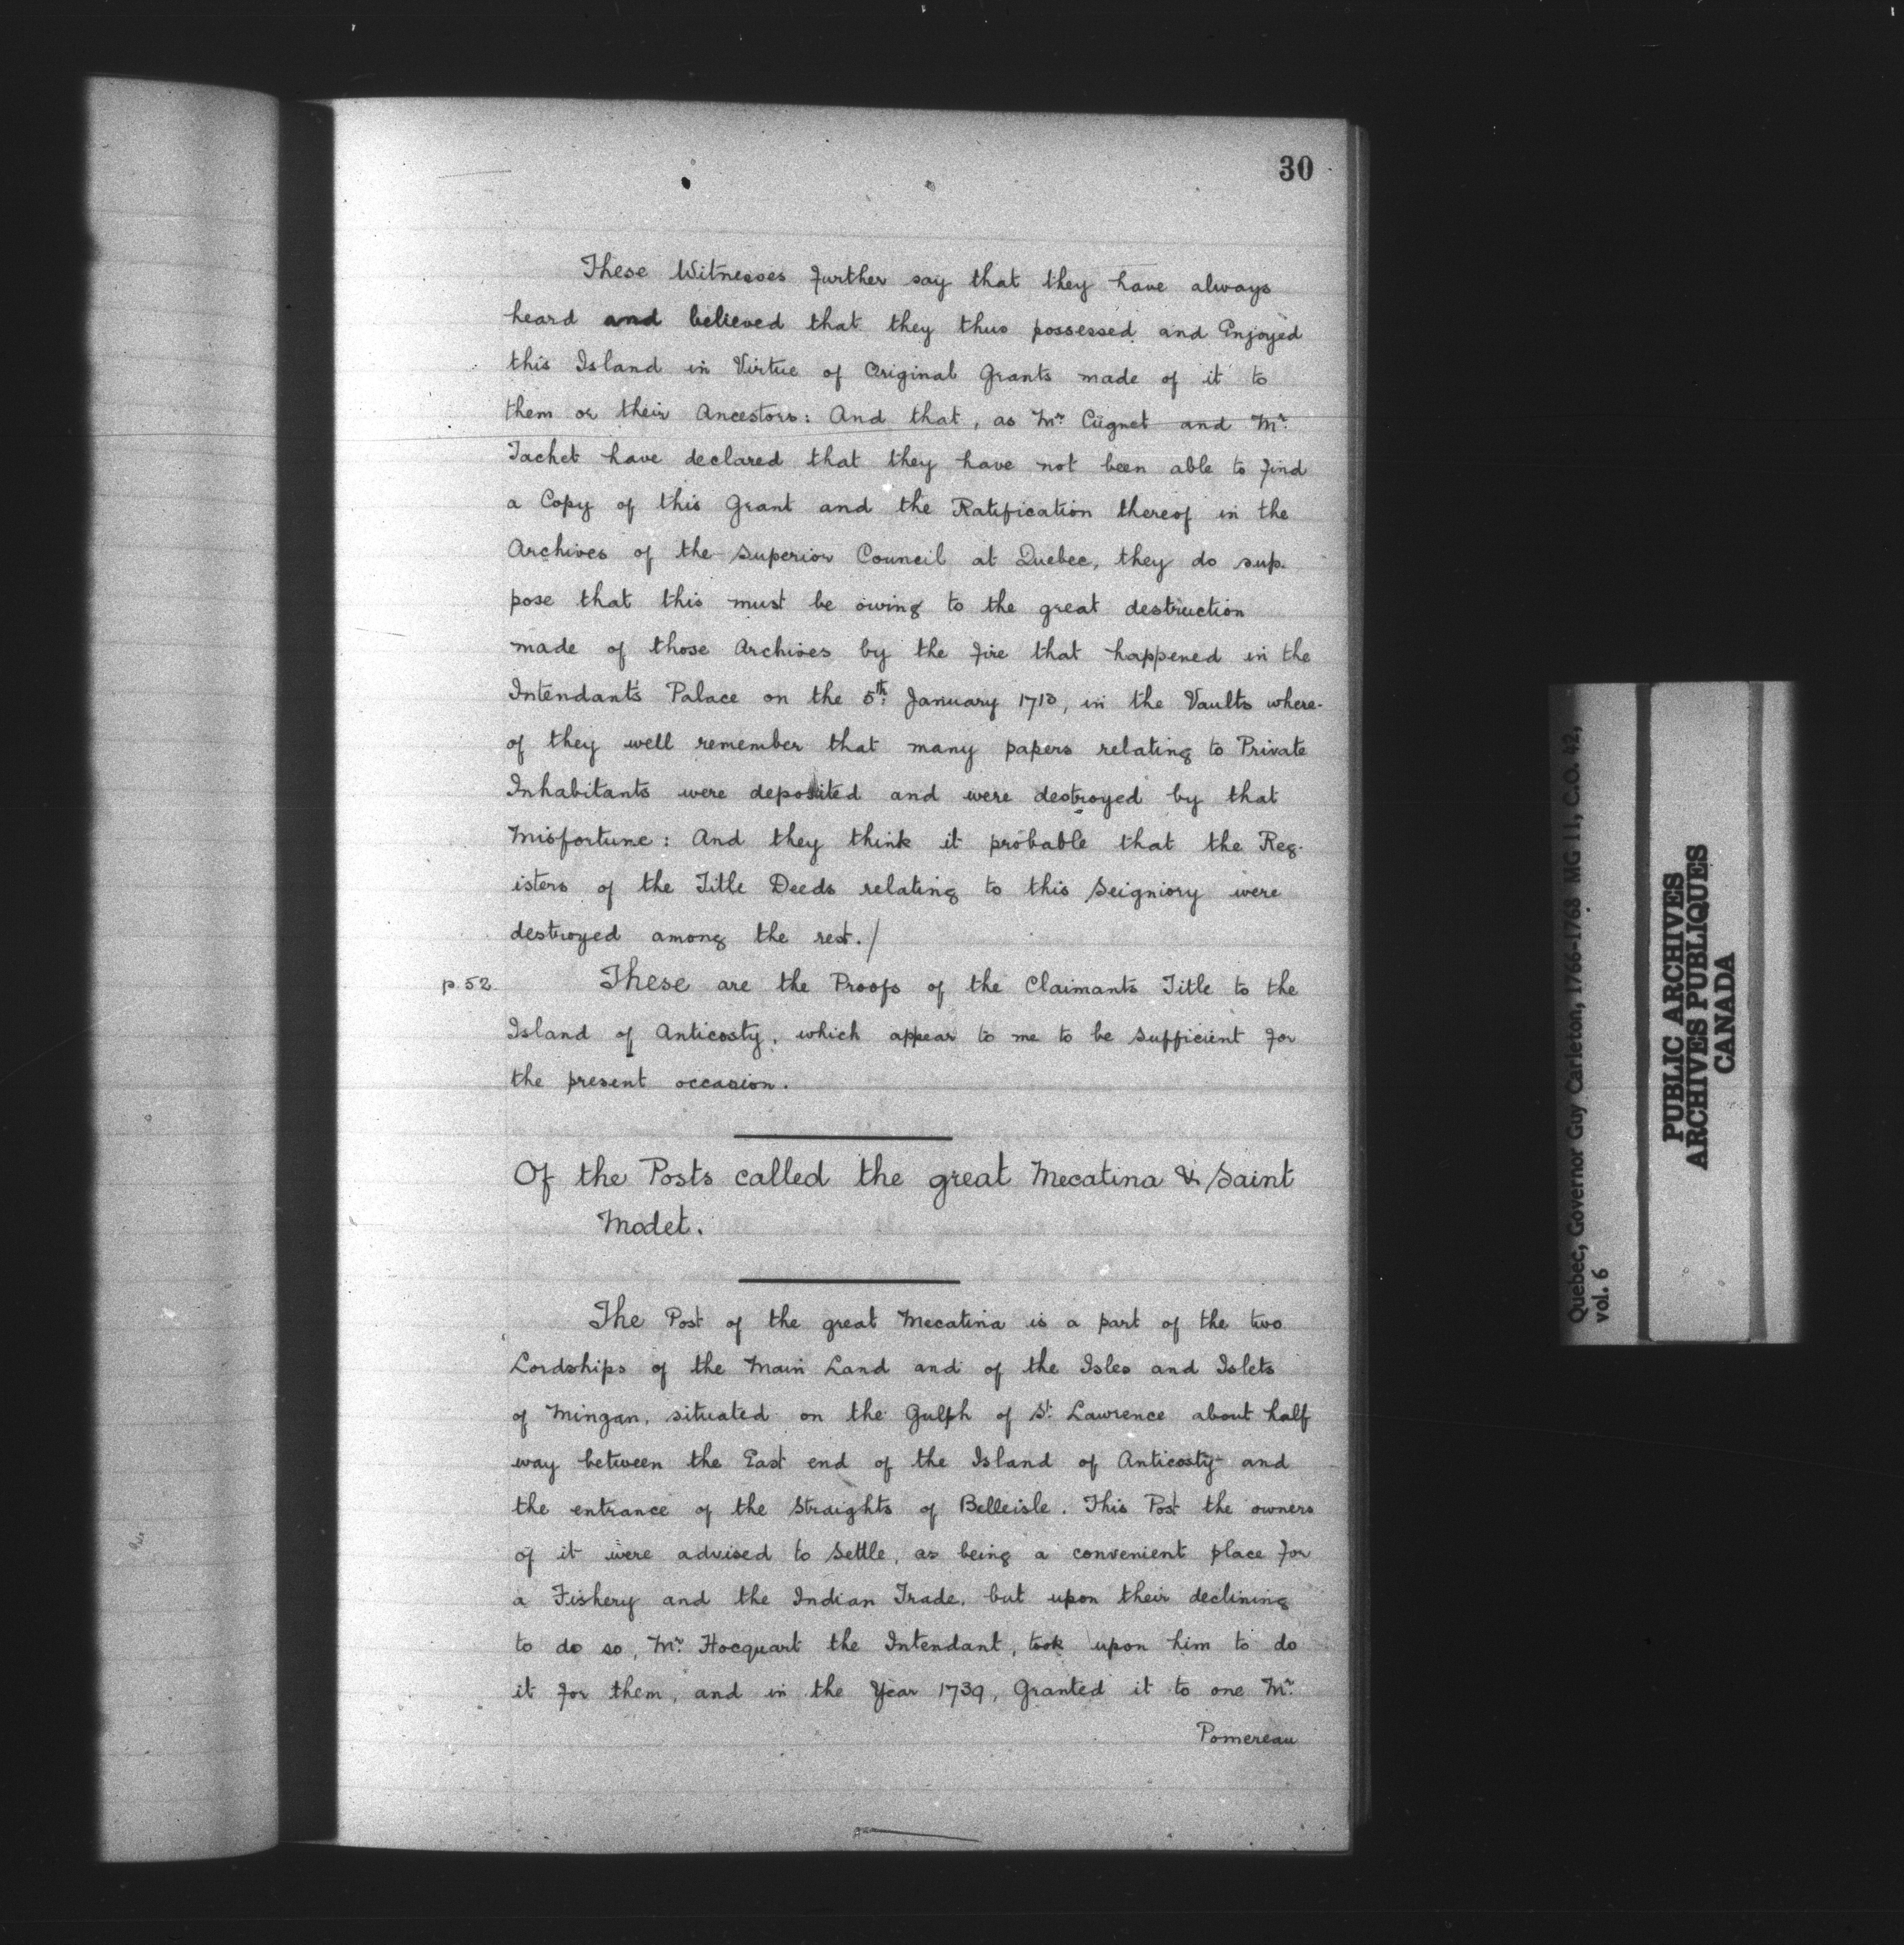 30
These Witnesses further say that they have always
heard and believed that they thus possessed and Enjoyed
this Island in Virtue of Original Grants made of it to
them or their Ancestors: And that, as Mr. Cugnet and Mr.
Tachet have declared that they have not been able to find
a Copy of this Grant and the Ratification thereof in the
Archives of the Superior Council at Quebec, they do sup-
pose that this must be owing to the great destruction
made of those Archives by the fire that happened in the
Intendant's Palace on the 5th January 1713, in the Vaults where-
of they well remember that many papers relating to Private
Inhabitants were deposited and were destroyed by that
Misfortune: And they think it probable that the Reg-
isters of the Title Deeds relating to this Seigniory were
destroyed among the rest./
p. 52 These are the Proofs of the Claimants Title to the
Island of Anticosty, which appear to me to be Sufficient for
the present occasion.
Of the Posts called the great Mecatina & Saint
Modet.
The Post of the great Mecatina is a part of the two
Lordships of the Main Land and of the Isles and Islets
of Mingan, situated on the Gulph of St. Lawrence about half
way between the East end of the Island of Anticosty and
the entrance of the Straights of Belleisle. This Post the owners
of it were advised to Settle, as being a convenient place for
a Fishery and the Indian Trade, but upon their declining
to do so, Mr. Hocquart the Intendant, took upon him to do
it for them, and in the Year 1739, Granted it to one Mr.
Pomereau
Quebec, Governor Guy Carleton, 1766-1768 MG 11, C.O. 42,
vol. 6
PUBLIC ARCHIVES
ARCHIVES PUBLIQUES
CANADA